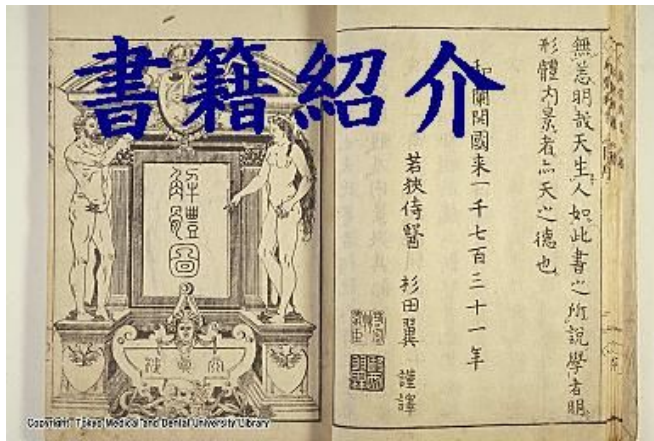 書籍紹介
無恙明哉天生人如此書之所説學者明
形體内景者亦天之德也
和蘭開國来一千七百三十一年
若狹侍醫 杉田翼 謹譯
解體圖
Copyright, Tokyo Medical and Dental University Library